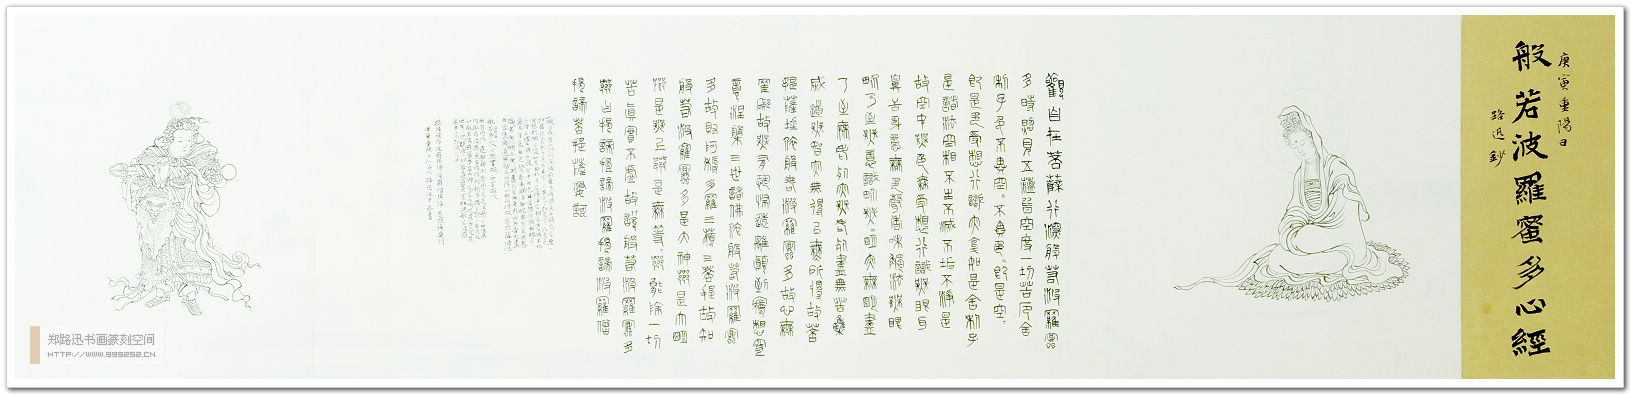 般若波羅蜜多心經
庚寅重陽日
路迅鈔
觀自在菩薩行深般若波羅蜜
多時照見五蘊皆空度一切苦厄舍
利子色不異空〻不異色〻即是空〻
即是色受想行識亦复如是舍利子
是諸法空相不生不滅不垢不淨是
故空中無色無受想行識無眼耳
鼻舌身意無色聲香味觸法無眼
界乃至無意識界無〻明亦無明盡
乃至無老死亦無老死盡無苦集
滅道無智亦無得以無所得故菩
提薩埵依般若波羅蜜多故心無
罣礙故無有恐怖遠離顛倒夢想究
竟涅槃三世諸佛依般若波羅蜜
多故得阿耨多羅三藐三菩提故知
般若波羅蜜多是大神咒是大明
咒是無上咒是無等〻咒能除一切
苦真實不虛故說般若波羅蜜多
咒曰揭諦揭諦波羅揭諦波羅僧
揭諦菩提薩婆訶
郑路迅书画篆刻空间
HTTP://WWW.999252.CN